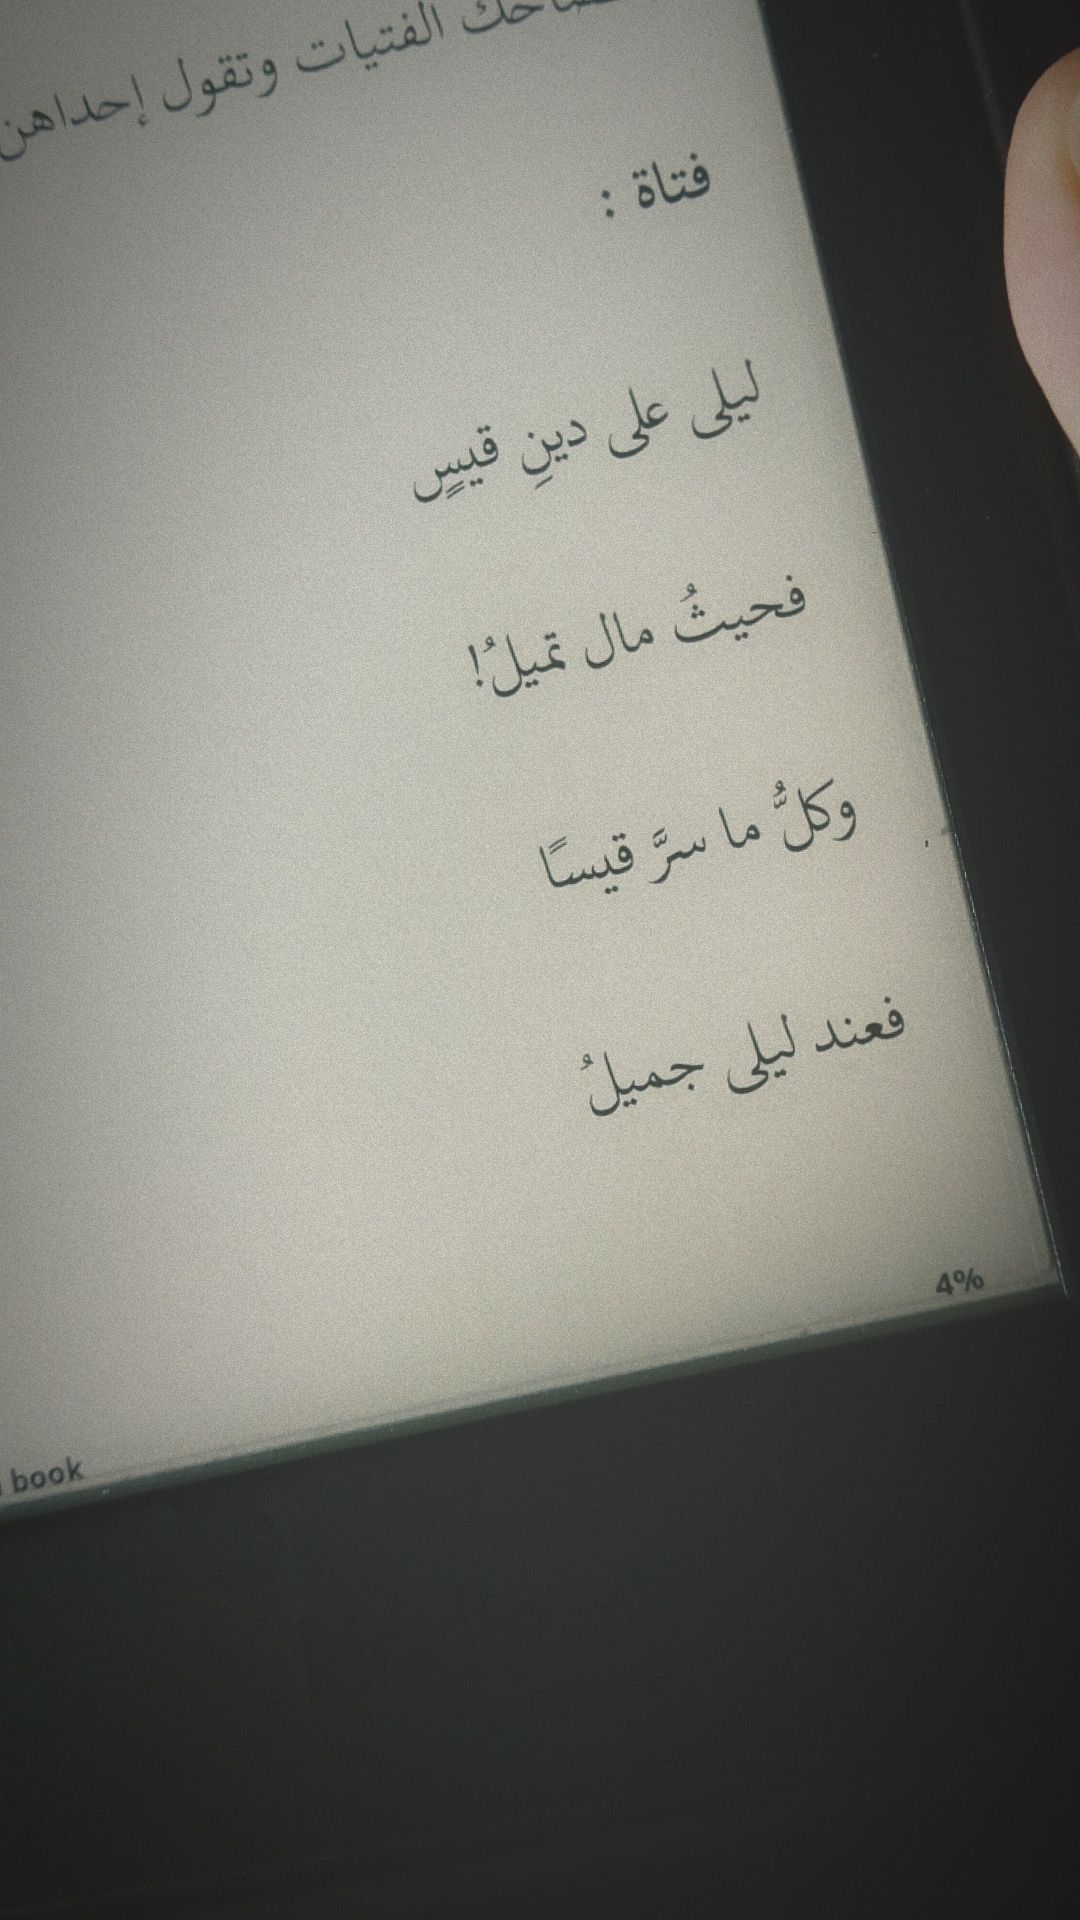 الفتيات وتقول إحداهن
فتاة :
ليلى على دينِ قيسٍ
فحيثُ مال تميلُ!
وكلُّ ما سرَّ قيسًا
فعند ليلى جميلُ
4%
book